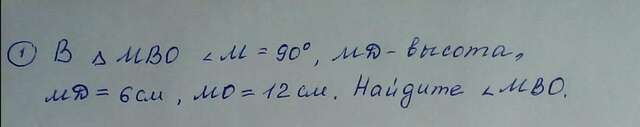 ① В △ МВО ∠М = 90°, МД - высота,
МД = 6 см, МО = 12 см. Найдите ∠МВО.